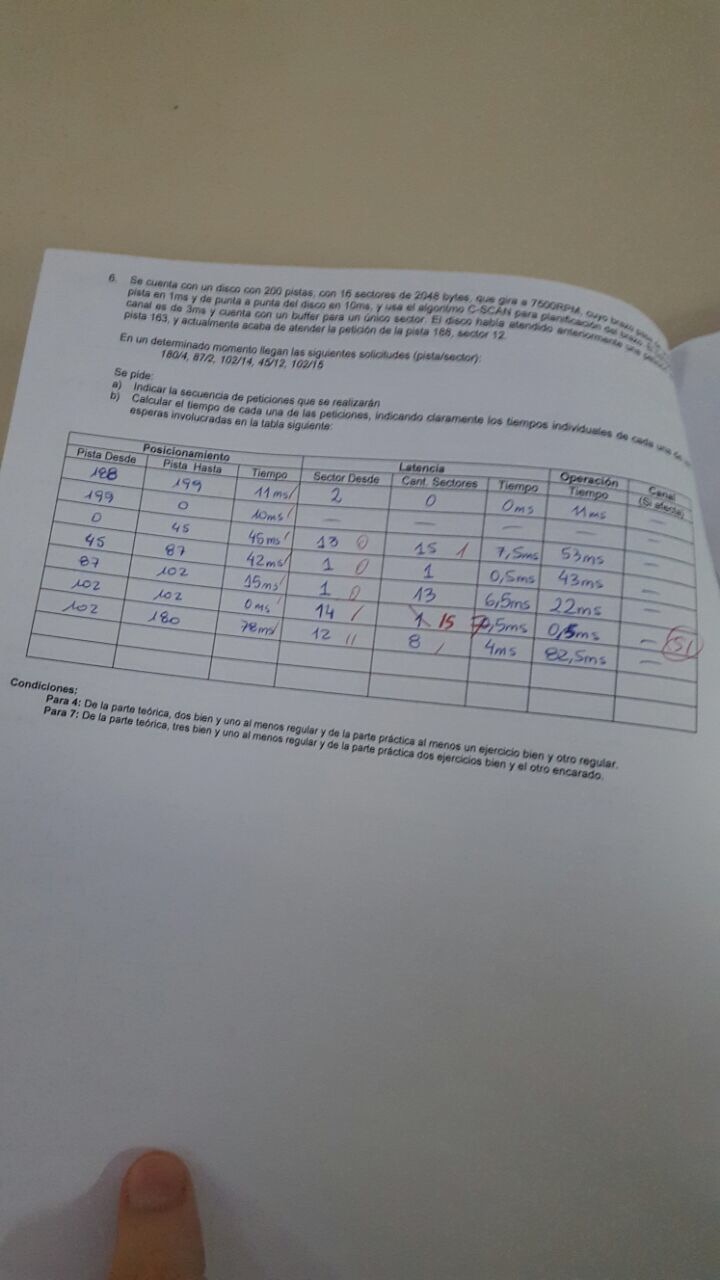 6. Se cuenta con un disco con 200 pistas, con 16 sectores de 2048 bytes, que gira a 7500RPM, cuyo brazo
pista en 1ms y de punta a punta del disco en 10ms, y usa el algoritmo C-SCAN para planificación del brazo
canal es de 3ms y cuenta con un buffer para un único sector. El disco había atendido anteriormente una
pista 163, y actualmente acaba de atender la petición de la pista 188, sector 12.
En un determinado momento llegan las siguientes solicitudes (pista/sector):
180/4, 87/2, 102/14, 45/12, 102/15
Se pide:
a) Indicar la secuencia de peticiones que se realizarán
b) Calcular el tiempo de cada una de las peticiones, indicando claramente los tiempos individuales de cada una de
esperas involucradas en la tabla siguiente:
Posicionamiento Latencia Operación Canal
Pista Desde Pista Hasta Tiempo Sector Desde Cant. Sectores Tiempo Tiempo (Si afecta)
188 199 11ms 2 0 0ms 11ms —
199 0 10ms — — — — —
0 45 45ms 13 0 15 1 7,5ms 53ms —
45 87 42ms 1 0 1 0,5ms 43ms —
87 102 15ms 1 0 13 6,5ms 22ms —
102 102 0ms 14 1 15 ,5ms 0,5ms — SI
102 180 78ms 12 11 8 4ms 82,5ms —
Condiciones:
Para 4: De la parte teórica, dos bien y uno al menos regular y de la parte práctica al menos un ejercicio bien y otro regular.
Para 7: De la parte teórica, tres bien y uno al menos regular y de la parte práctica dos ejercicios bien y el otro encarado.